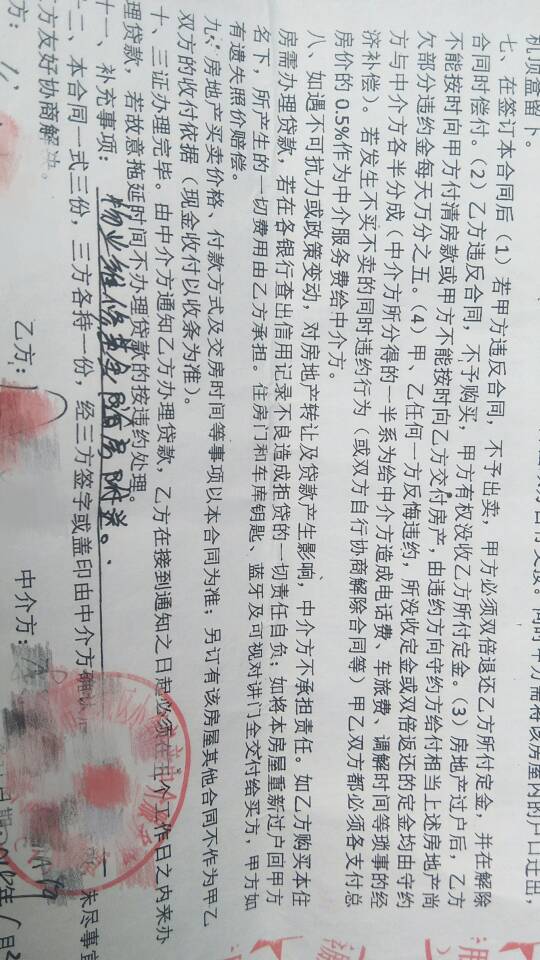 机顶盒留下。
七、在签订本合同后（1）若甲方违反合同，不予出卖，甲方必须双倍退还乙方所付定金，并在解除
合同时偿付。（2）乙方违反合同，不予购买，甲方有权没收乙方所付定金。（3）房地产过户后，乙方
不能按时向甲方付清房款或甲方不能按时向乙方交付房产，由违约方向守约方给付相当上述房地产尚
欠部分违约金每天万分之五。（4）甲、乙任何一方反悔违约，所没收定金或双倍返还的定金均由守约
方与中介方各半分成（中介方所分得的一半系为给中介方造成电话费、车旅费、调解时间等琐事的经
济补偿）。若发生不买不卖的同时违约行为（或双方自行协商解除合同等）甲乙双方都必须各支付总
房价的0.5%作为中介服务费给中介方。
八、如遇不可抗力或政策变动，对房地产转让及贷款产生影响，中介方不承担责任。如乙方购买本住
房需办理贷款，若在各银行查出信用记录不良造成拒贷的一切责任自负；如将本房屋重新过户回甲方
名下，所产生的一切费用由乙方承担。住房门和车库钥匙、蓝牙及可视对讲门全交付给买方，甲方如
有遗失照价赔偿。
九、房地产买卖价格、付款方式及交房时间等事项以本合同为准；另订有该房屋其他合同不作为甲乙
双方的收付依据（现金收付以收条为准）。
十、三证办理完毕。由中介方通知乙方办理贷款，乙方在接到通知之日起必须在 个工作日之内来办
理贷款，若故意拖延时间不办理贷款的按违约处理
十一、补充事项：物业维修基金随房附送。 未尽事宜
二、本合同一式三份，三方各持一份，经三方签字或盖印由中介方
方友好协商解决。
方： 乙方： 中介方：
日期